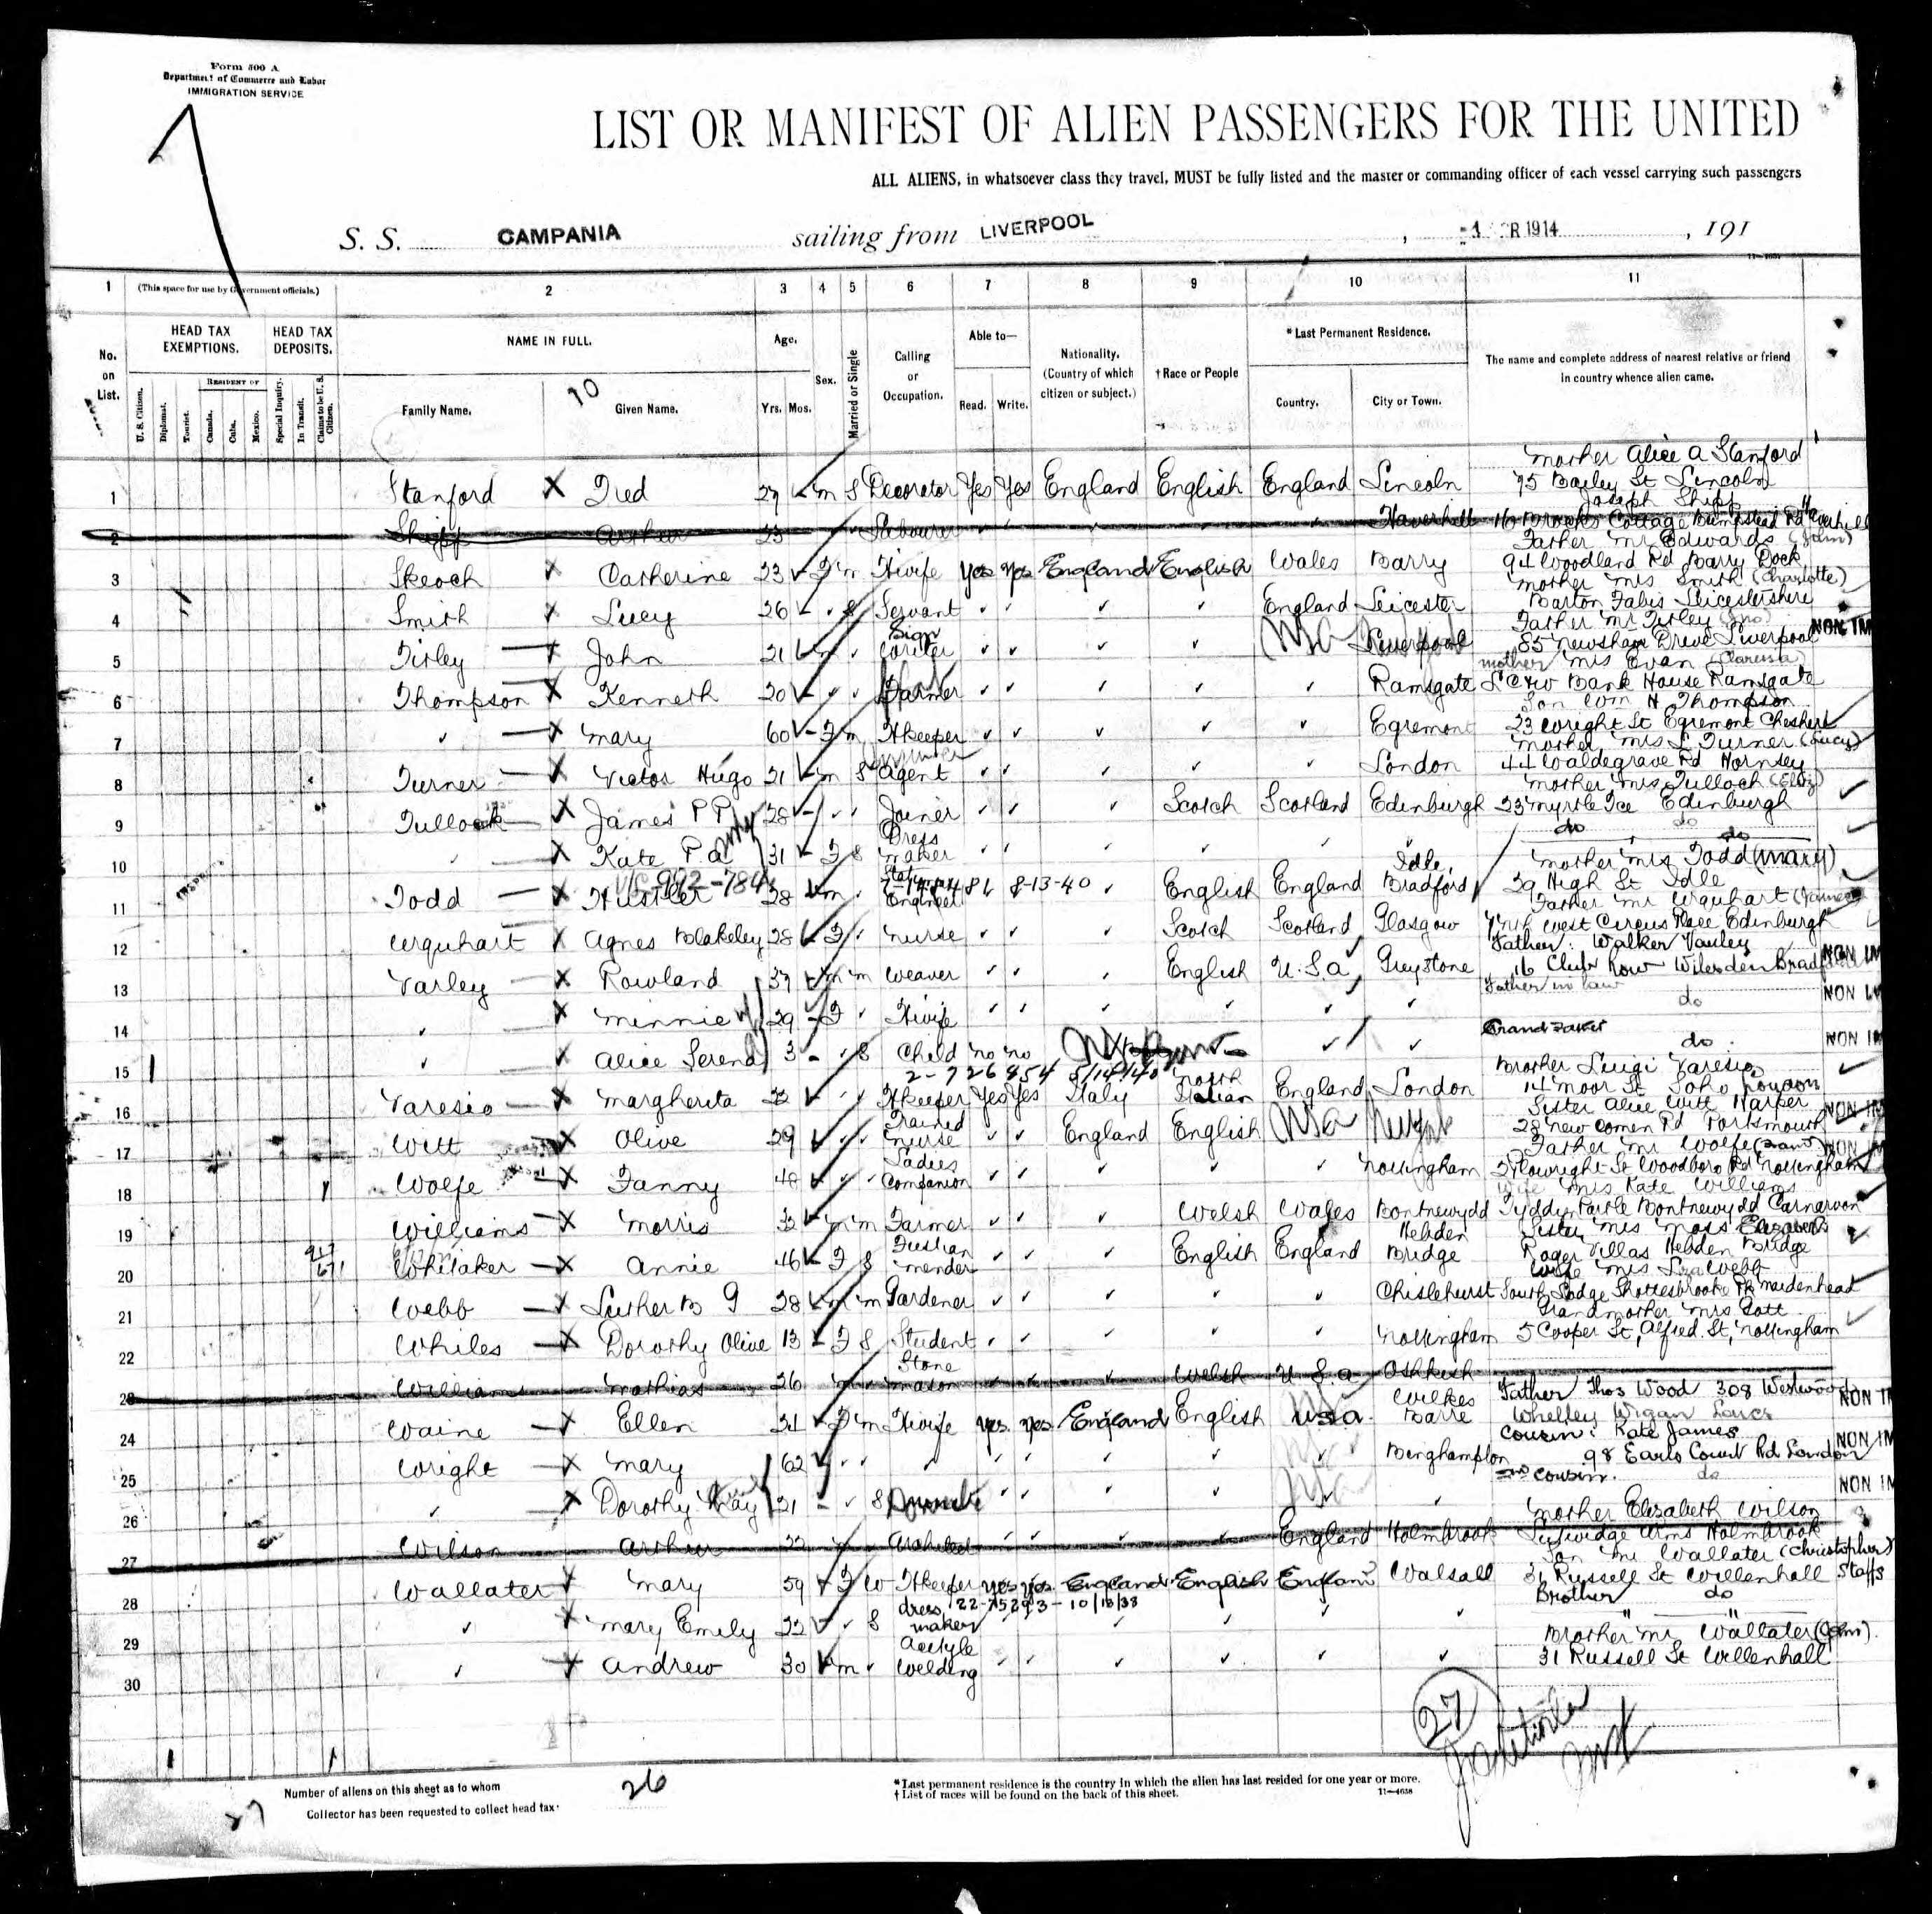 Form 500 A
Department of Commerce and Labor
IMMIGRATION SERVICE
LIST OR MANIFEST OF ALIEN PASSENGERS FOR THE UNITED
ALL ALIENS, in whatsoever class they travel, MUST be fully listed and the master or commanding officer of each vessel carrying such passengers
S. S. CAMPANIA sailing from LIVERPOOL , R 1914 , 191
1 (This space for use by Government officials.) 2 3 4 5 6 7 8 9 10 11
No. on List.
HEAD TAX EXEMPTIONS.
HEAD TAX DEPOSITS.
U. S. Citizen. Diplomat. Tourist. RESIDENT OF Canada. Cuba. Mexico. Special Inquiry. In Transit. Claims to be U. S. Citizen.
NAME IN FULL.
Family Name. Given Name.
Age. Yrs. Mos.
Sex.
Married or Single
Calling or Occupation.
Able to— Read. Write.
Nationality. (Country of which citizen or subject.)
† Race or People
* Last Permanent Residence.
Country. City or Town.
The name and complete address of nearest relative or friend in country whence alien came.
mother Alice A Stanford
1 Stanford X Fred 29 m S Decorator Yes Yes England English England Lincoln 75 Bailey St Lincoln
Joseph Shipp
2 Shipp Arthur 23 Labourer Haverhill 16 Brooks Cottage Bumpstead Rd Haverhill
Father Mr Edwards (John)
3 Skeoch X Catherine 23 F m H'wife Yes Yes England English Wales Barry 94 Woodland Rd Barry Dock
mother Mrs Smith (Charlotte)
4 Smith X Lucy 26 S Servant England Leicester Barton Fabis Leicestershire
Father Mr Tirley (Jno)
5 Tirley X John 21 m Sign writer USA Liverpool 85 Newsham Drive Liverpool NON IM
mother Mrs Evan (Clarissa)
6 Thompson X Kenneth 20 Farmer Ramsgate Bank House Ramsgate
Son Wm H Thompson
7 X Mary 60 F m H'keeper Egremont 23 Wright St Egremont Cheshire
mother Mrs L Turner (Lucy)
8 Turner X Victor Hugo 21 m S Agent London 44 Waldegrave Rd Hornsey
mother Mrs Tulloch (Eliz)
9 Tulloch X James P P 28 Joiner Scotch Scotland Edinburgh 23 Myrtle Tce Edinburgh
do do do
10 X Kate P a 31 F S Dress maker
mother Mrs Todd (Mary)
11 Todd X Hustler 28 m Engineer 8-13-40 English England Idle Bradford 39 High St Idle
Father Mr Urquhart (James)
12 Urquhart X Agnes Blakeley 28 F Nurse Scotch Scotland Glasgow West Circus Place Edinburgh
Father: Walker Varley
13 Varley X Rowland 37 m m Weaver English U.S.a Greystone 16 Club Row Wilsden Bradford NON IM
Father in law
14 X Minnie 29 F H'wife do NON IM
Grand Father
15 X Alice Serena 3 S Child no no do NON IM
2-726454 5/14/40
Brother Luigi Varesio
16 Varesio X Margherita 32 H'keeper Yes Yes Italy North Italian England London 14 Moor St Soho London
Sister Alice Witt Harper
17 Witt X Olive 29 Trained Nurse England English USA New York 28 New Comen Rd Portsmouth NON IM
Father Mr Wolfe
18 Wolfe X Fanny 48 Ladies Companion Nottingham St Woodboro Rd Nottingham NON IM
Wife Mrs Kate Williams
19 Williams X Morris 32 m m Farmer Welsh Wales Bontnewydd Bontnewydd Carnarvon
Sister Mrs Moss Elizabeth
20 Whitaker X Annie 46 F S Fustian mender English England Hebden Bridge Roger Villas Hebden Bridge
Wife Mrs Webb
21 Webb X Luther B G 28 m m Gardener Chislehurst South Lodge Shottesbrooke Pk Maidenhead
Grandmother Mrs Gott
22 Whiles X Dorothy Olive 13 F S Student Nottingham 5 Cooper St, Alfred St, Nottingham
23 Williams Mathias 26 m Stone mason Welsh U.S.a Oshkosh
Father Thos Wood 308 Westwood
24 Waine X Ellen 21 F m H'wife yes yes England English U.S.a. Wilkes Barre Whelley Wigan Lancs NON IM
Cousin: Kate James
25 Wright X Mary 62 Binghampton 98 Earls Court Rd London NON IM
2nd cousin. do
26 X Dorothy May 21 S NON IM
mother Elizabeth Wilson
27 Wilson Arthur 22 Architect England Holmbrook Lutwidge Arms Holmbrook
Son Mr Wallater (Christopher)
28 Wallater X Mary 59 F W H'keeper yes yes England English England Walsall 31 Russell St Willenhall Staffs
Brother do
29 X Mary Emily 22 S dress maker 22-75293-10/18/38
Brother Mr Wallater (John).
30 X Andrew 30 m Acetyle Welding 31 Russell St Willenhall
27
Number of aliens on this sheet as to whom
Collector has been requested to collect head tax· 26
27
* Last permanent residence is the country in which the alien has last resided for one year or more.
† List of races will be found on the back of this sheet. 11—4638